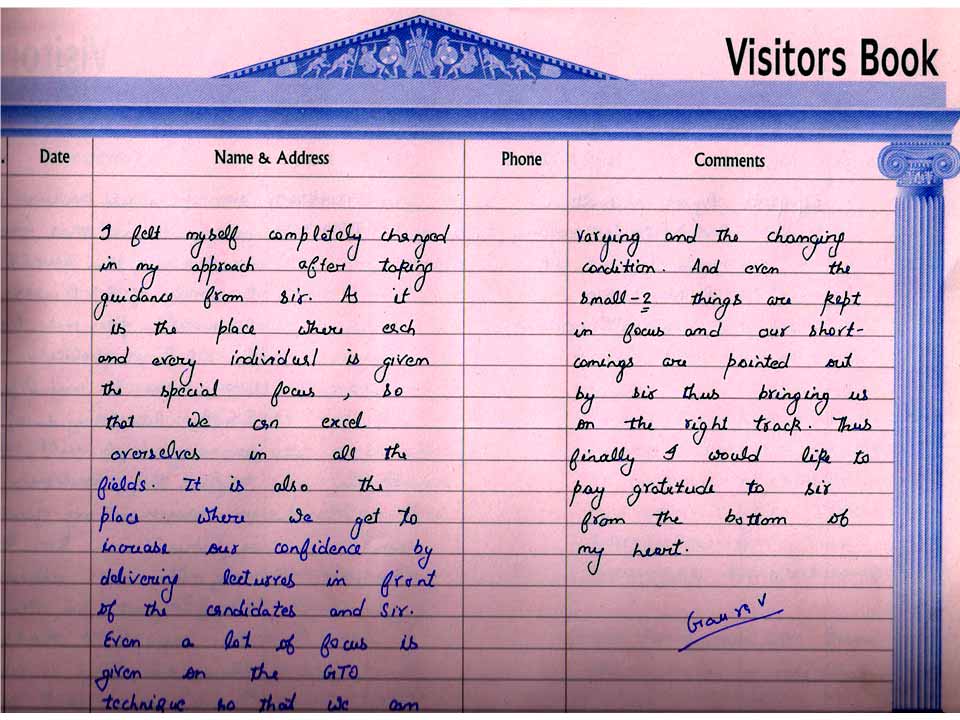 Visitors Book
Date
Name & Address
Phone
Comments
I felt myself completely changed
in my approach after taking
guidance from sir. As it
is the place where each
and every individual is given
the special focus, so
that we can excel
overselves in all the
fields. It is also the
place where we get to
increase our confidence by
delivering lecturres in front
of the candidates and Sir.
Even a lot of focus is
given on the GTO
technique so that we can
varying and the changing
condition. And even the
small-2 things are kept
in focus and our short-
comings are pointed out
by sir thus bringing us
on the right track. Thus
finally I would like to
pay gratetude to sir
from the bottom of
my heart.
Gaurav